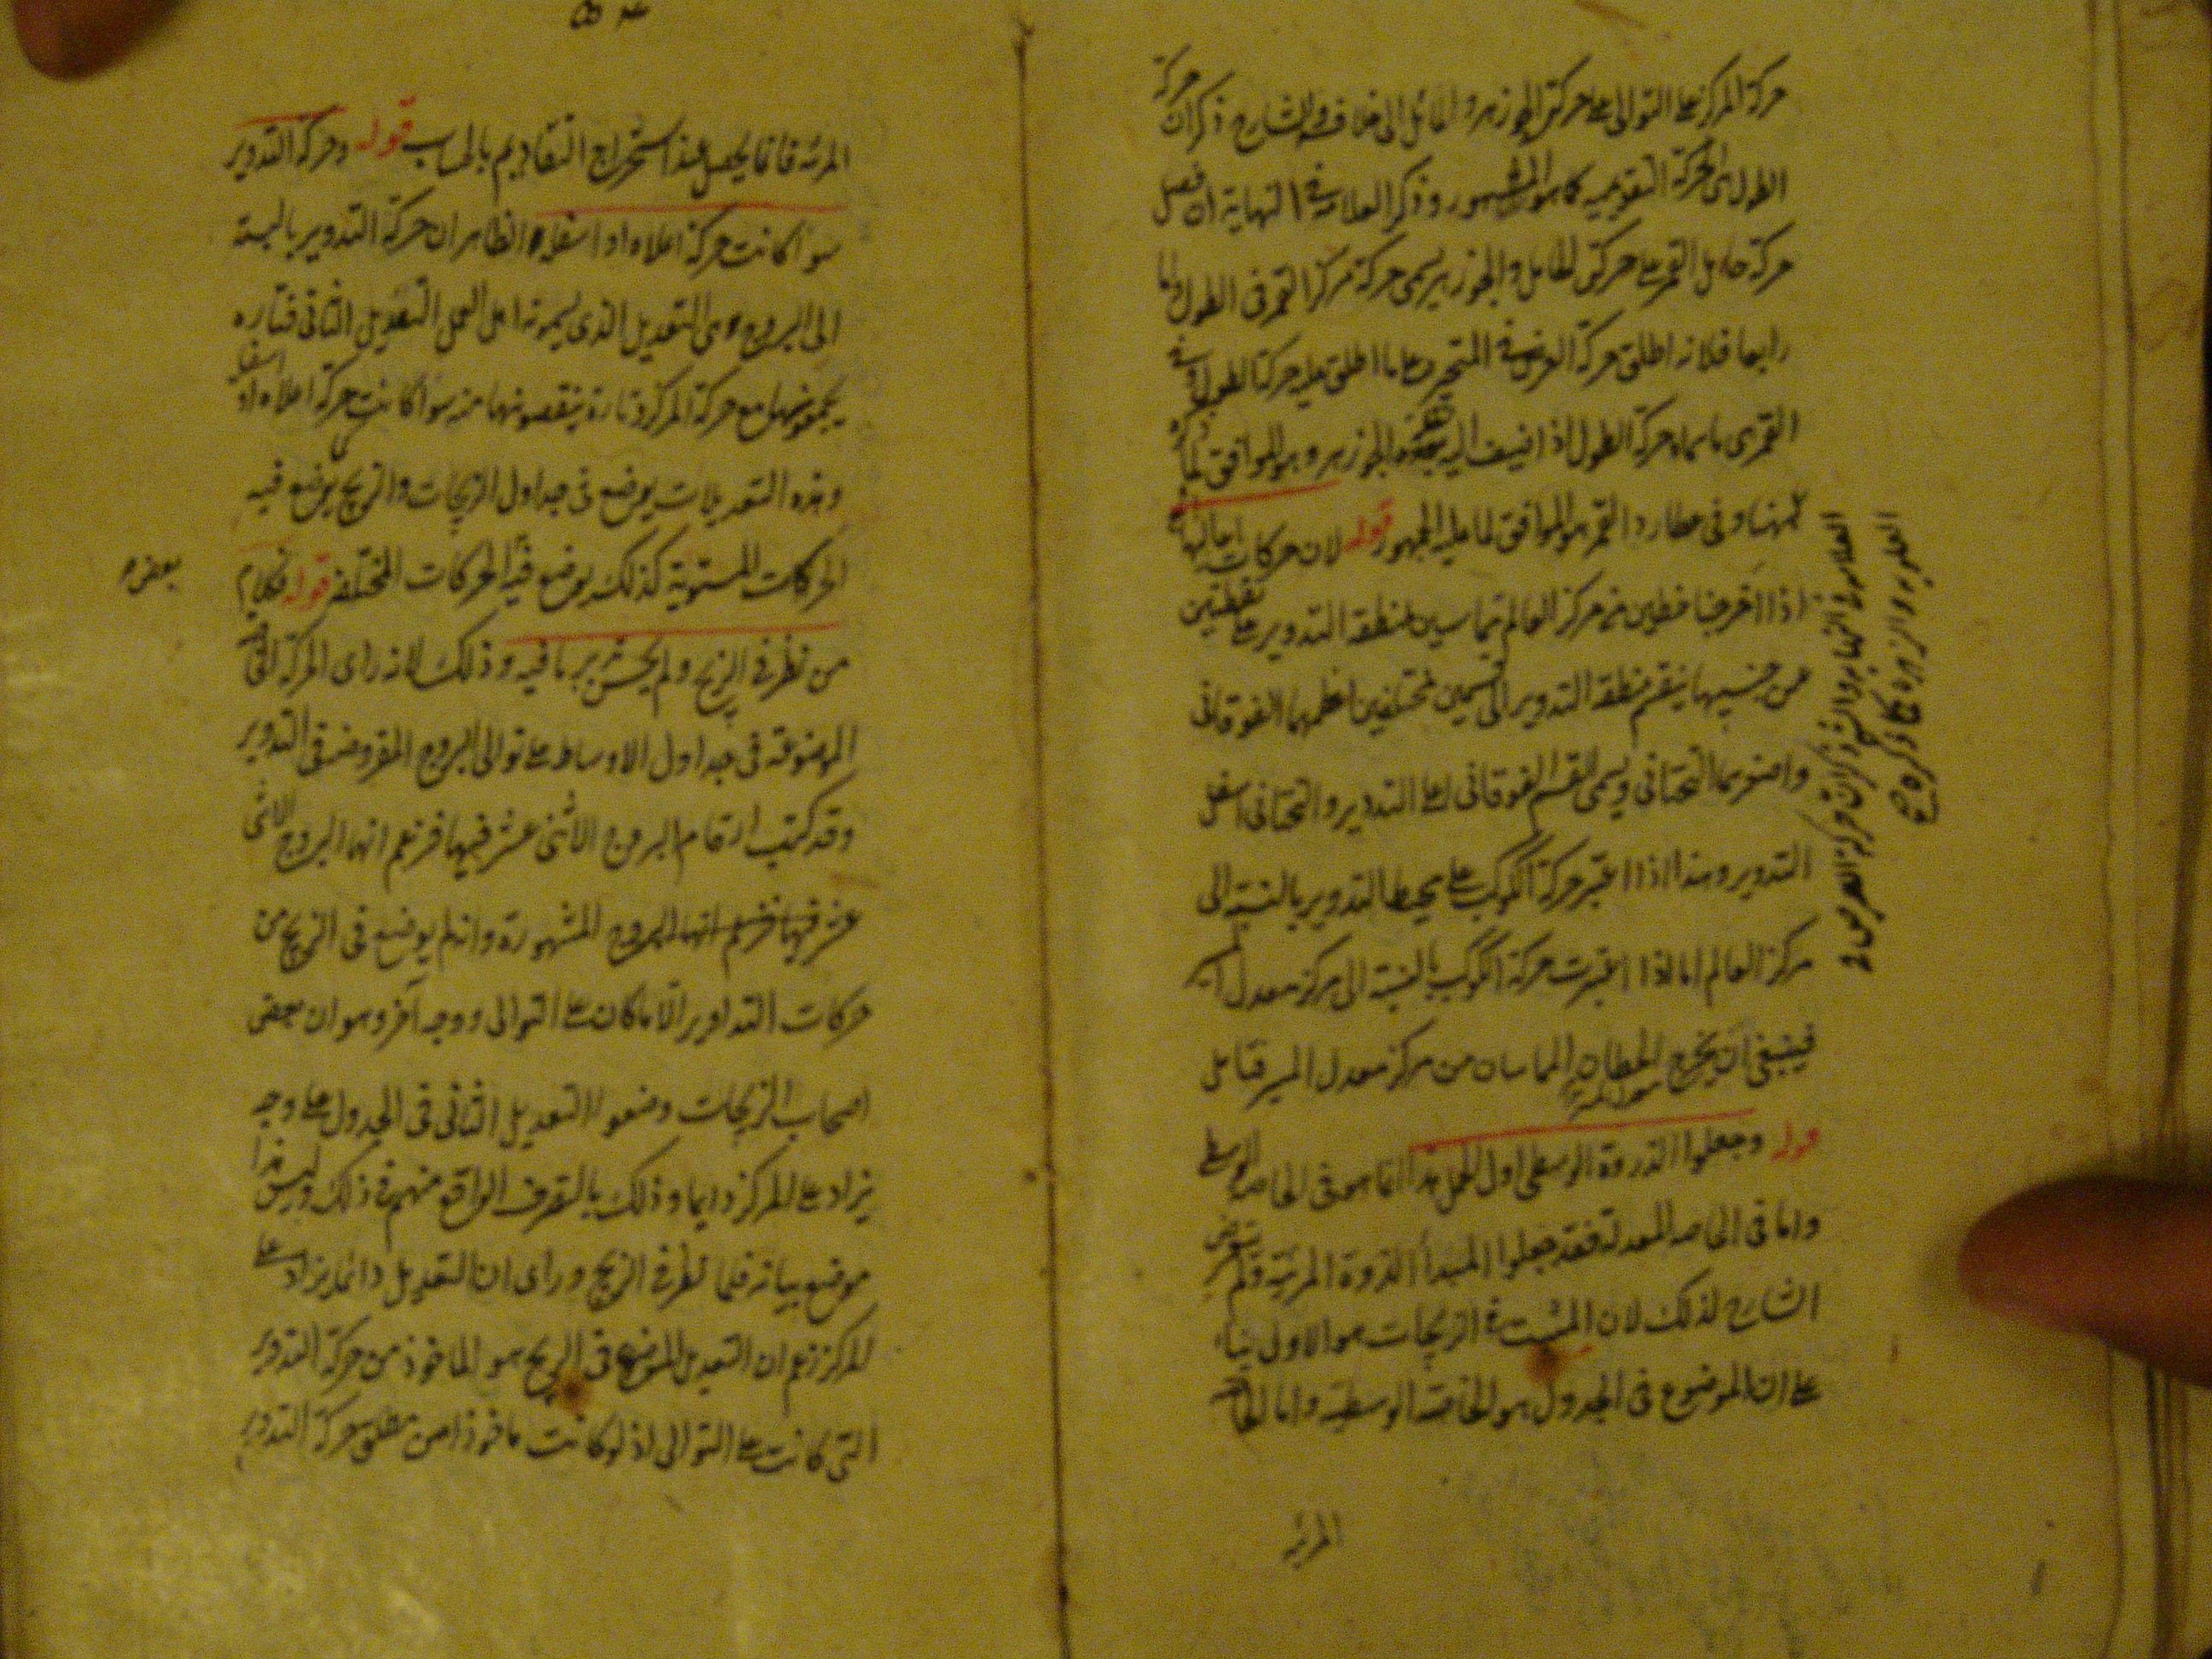 حركة المركز على التوالى على حركتى الجوزهر والمائل الى خلافه والشارح ذكر ان حركة
الطول هى الحركة التقويمية كما هو المشهور وذكر العلامة فى النهاية ان فضل
حركة حامل القمر على حركتى المائل والجوزهر يسمى حركة مركز القمر فى الطول واما
رابعا فلانه اطلق حركة العرض فى المتحيرة على ما اطلق عليه حركة الطول وفى
القمر على ما سماه حركة الطول اذا اضيف اليه الجوزهر وهو الموافق لما ذكره
ههنا وفى عطارد القمر هو الموافق لما عليه الجمهور قوله لان حركات اعاليها
اذا اخرجنا خطين من مركز العالم يماسين لمنطقة التدوير على نقطتين
من جنبيها ينقسم منطقة التدوير الى قسمين مختلفين اعظمهما الفوقانى
واصغرهما التحتانى ويسمى القسم الفوقانى اعلى التدوير والتحتانى اسفل
التدوير وهذا اذا اعتبر حركة الكوكب على محيط التدوير بالنسبة الى
مركز العالم اما اذا اعتبرت حركة الكوكب بالنسبة الى مركز معدل المسير
فينبغى ان يخرج الخطان المماسان من مركز معدل المسير فتامل
قوله وجعلوا الذروة الوسطى اول الحمل هذا انما هو فى الخاصة الوسطى
واما فى الخاصة المعدلة فقد جعلوا المبدأ الذروة المرئية ولم يتعرض
الشارح لذلك لان المثبت فى الزيجات هو الاولى بناء
على ان الموضوع فى الجدول هو الخاصة الوسطية واما الخاصة
المرئية
المرئية فانما يحصل عند استخراج التقاويم بالحساب قوله وحركة التدوير
سوا كانت حركة اعلاه او اسفله الظاهر ان حركة التدوير بالنسبة
الى البروج هى التعديل الذى يسمونه اهل العمل التعديل الثانى فتارة
يجمعونها مع حركة المركز وتارة ينقصونها منه سوا كانت حركة اعلاه او اسفله
وهذه التعديلات يوضع فى جداول الزيجات والزيج يوضع فيه
الحركات المستوية كذلك يوضع فيه الحركات المختلفة قوله فكلام
بعض
من نظر فى الزيج ولم يحسن تدبر ما فيه وذلك لانه راى الحركة الخاصة
الموضوعة فى جداول الاوساط على توالى البروج المفروضة فى التدوير
وقد كتب ارقام البروج الاثنى عشر فيها فزعم انها البروج الاثنى
عشر فيها فزعم انها البروج المشهورة وانه لم يوضع فى الزيج من
حركات التداوير الا ما كان على التوالى ووجه آخر وهو ان بعض
اصحاب الزيجات وضعوا التعديل الثانى فى الجدول على وجه
يزاد على المركز دايما وذلك بالتصرف الواقع منهم فى ذلك وليس هذا
موضع بيانه فلما نظر فى الزيج وراى ان التعديل دائما يزاد على
المركز زعم ان التعديل الموضوع فى الزيج هو الماخوذ من حركة التدوير
التى كانت على التوالى اذ لو كانت ماخوذا من مطلق حركة التدوير